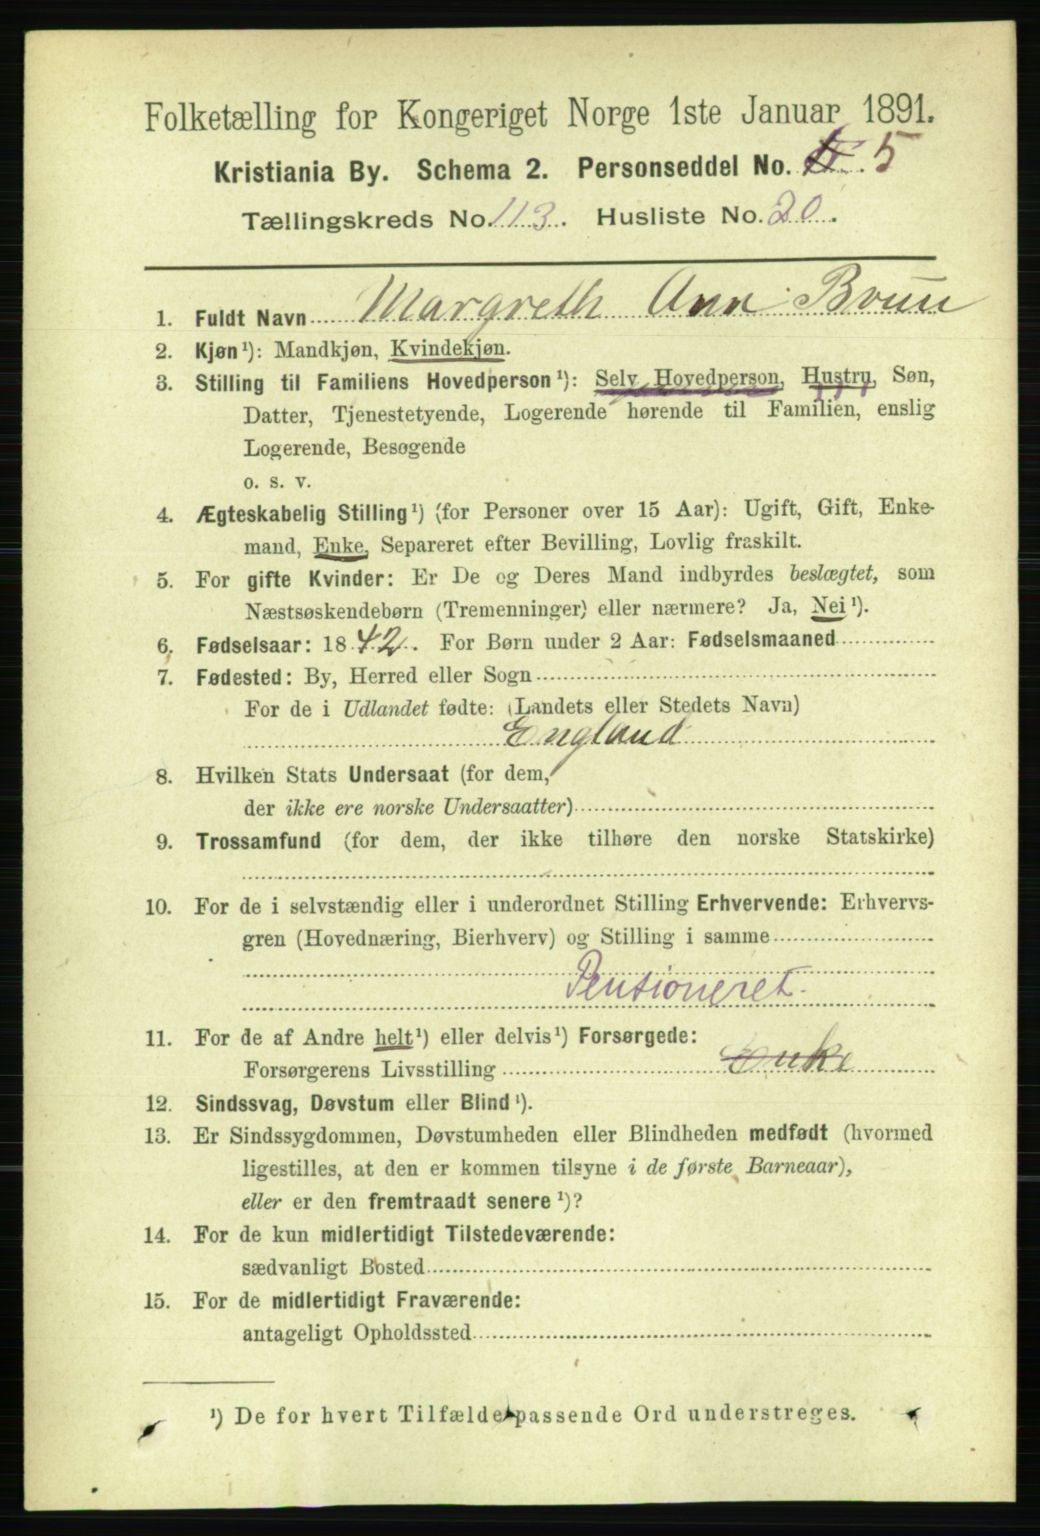 Folketælling for Kongeriget Norge 1ste Januar 1891.
Kristiania By. Schema 2. Personseddel No. 5
Tællingskreds No. 113. Husliste No. 20.
1. Fuldt Navn Margreth Ann Bruun
2. Kjøn¹): Mandkjøn, Kvindekjøn.
3. Stilling til Familiens Hovedperson¹): Selv Hovedperson, Hustru, Søn,
Datter, Tjenestetyende, Logerende hørende til Familien, enslig
Logerende, Besøgende
o. s. v.
4. Ægteskabelig Stilling¹) (for Personer over 15 Aar): Ugift, Gift, Enke-
mand, Enke, Separeret efter Bevilling, Lovlig fraskilt.
5. For gifte Kvinder: Er De og Deres Mand indbyrdes beslægtet, som
Næstsøskendebørn (Tremenninger) eller nærmere? Ja, Nei¹).
6. Fødselsaar: 1842. For Børn under 2 Aar: Fødselsmaaned
7. Fødested: By, Herred eller Sogn
For de i Udlandet fødte: (Landets eller Stedets Navn)
England
8. Hvilken Stats Undersaat (for dem,
der ikke ere norske Undersaatter)
9. Trossamfund (for dem, der ikke tilhøre den norske Statskirke)
10. For de i selvstændig eller i underordnet Stilling Erhvervende: Erhvervs-
gren (Hovednæring, Bierhverv) og Stilling i samme
Pensioneret.
11. For de af Andre helt¹) eller delvis¹) Forsørgede:
Forsørgerens Livsstilling Enke
12. Sindssvag, Døvstum eller Blind¹).
13. Er Sindssygdommen, Døvstumheden eller Blindheden medfødt (hvormed
ligestilles, at den er kommen tilsyne i de første Barneaar),
eller er den fremtraadt senere¹)?
14. For de kun midlertidigt Tilstedeværende:
sædvanligt Bosted
15. For de midlertidigt Fraværende:
antageligt Opholdssted
¹) De for hvert Tilfælde passende Ord understreges.